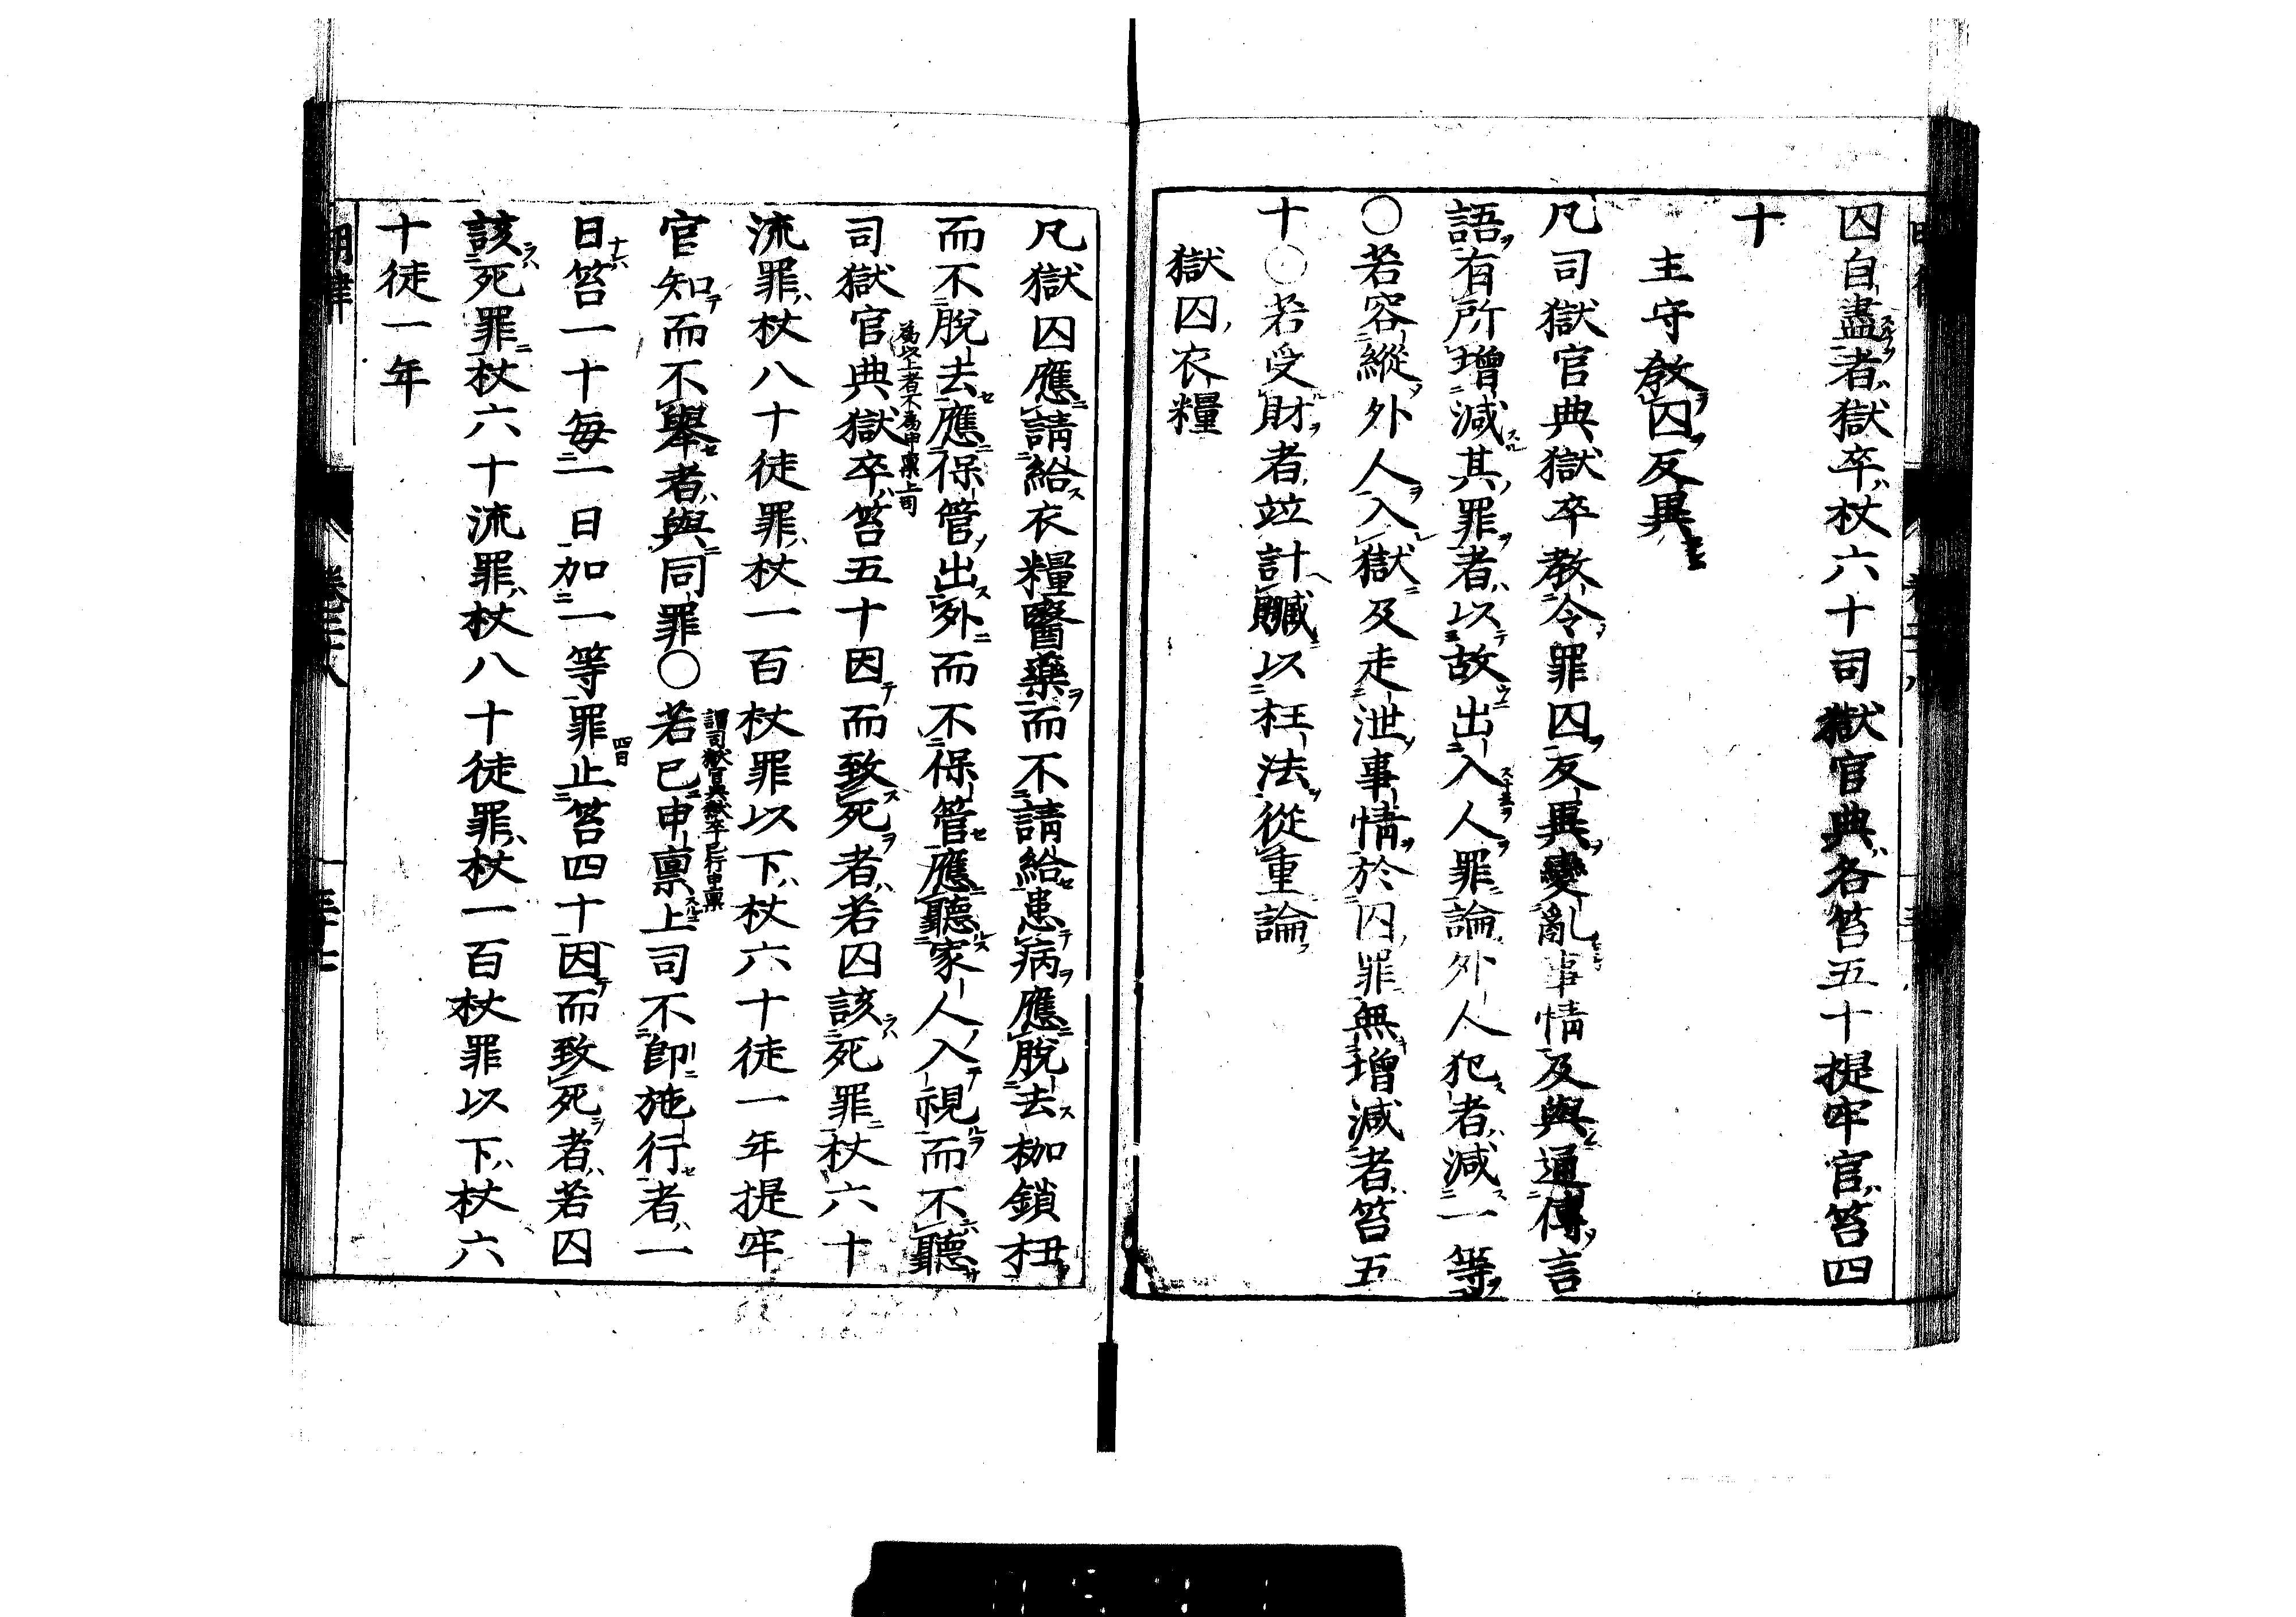 囚自盡者獄卒杖六十司獄官典各笞五十提牢官笞四
十
主守教囚反異
凡司獄官典獄卒教令罪囚反異變亂事情及與通傳言
語有所增減其罪者以故出入人罪論外人犯者減一等
○若容縱外人入獄及走泄事情於囚罪無增減者笞五
十○若受財者竝計贓以枉法從重論
獄囚衣糧
凡獄囚應請給衣糧醫藥而不請給患病應脫去枷鎖杻
而不脫去應保管出外而不保管應聽家人入視而不聽
司獄官典獄卒笞五十因而致死者若囚該死罪杖六十
為以上者不為申稟上司
流罪杖八十徒罪杖一百杖罪以下杖六十徒一年提牢
官知而不舉者與同罪○若已申稟上司不卽施行者一
謂司獄官典獄卒已行申稟
日笞一十每一日加一等罪止笞四十因而致死者若囚
該死罪杖六十流罪杖八十徒罪杖一百杖罪以下杖六
十徒一年